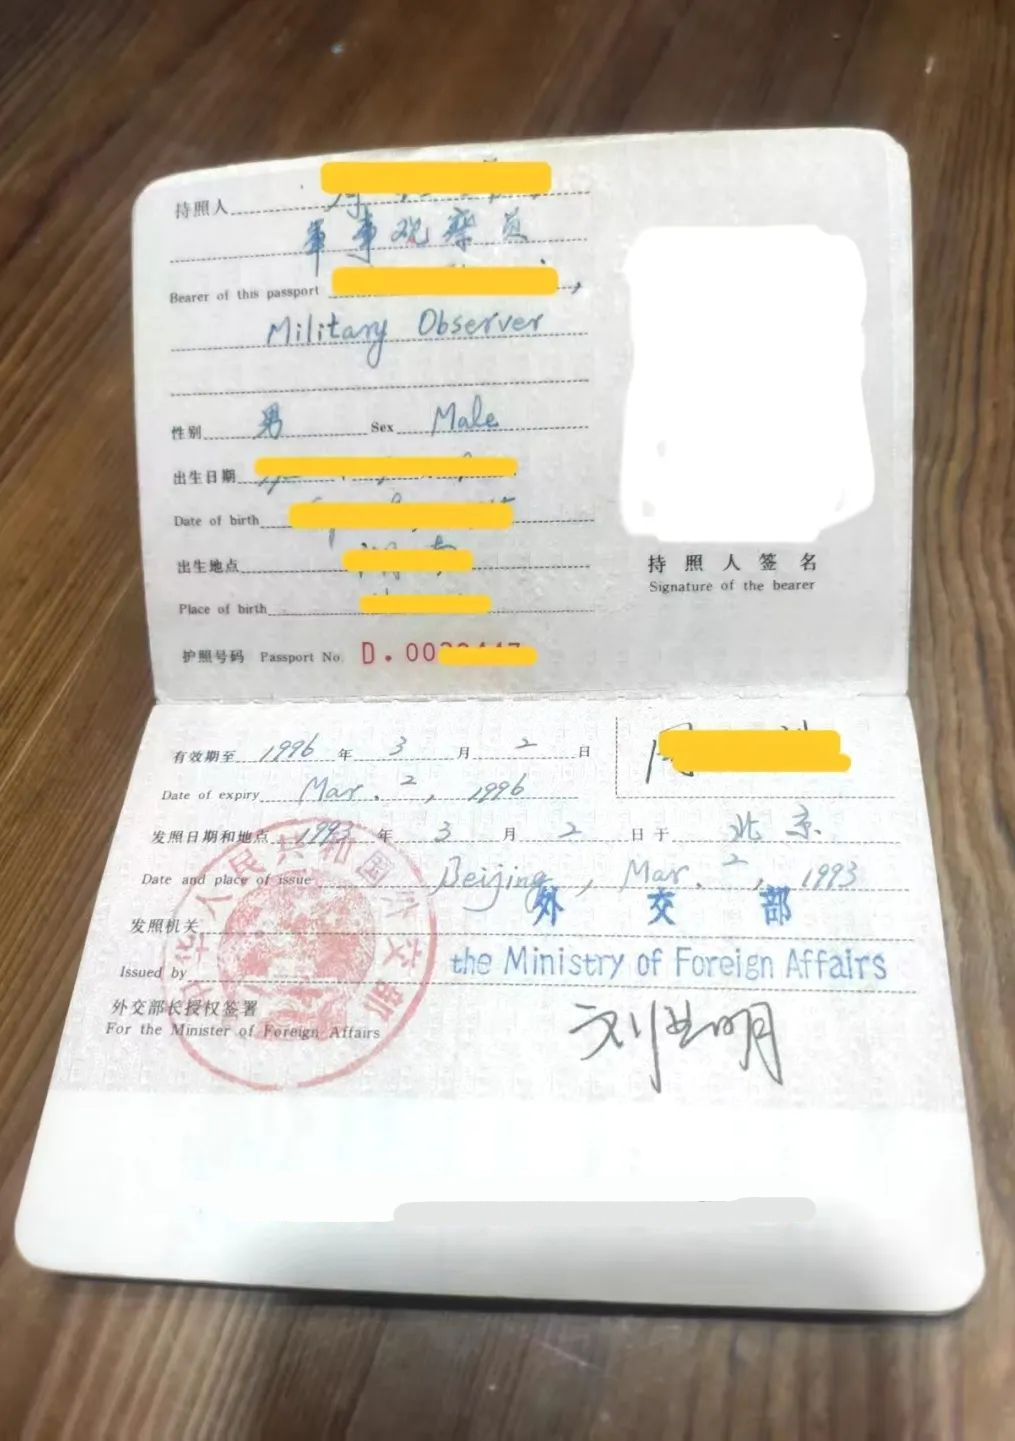 持照人
軍事观察员
Bearer of this passport ,
Military Observer
性别 男 Sex Male
出生日期
Date of birth
出生地点
Place of birth
护照号码 Passport No. D.00
持照人签名
Signature of the bearer
有效期至 1996 年 3 月 2 日
Date of expiry Mar. 2, 1996
发照日期和地点 1993 年 3 月 2 日于 北京
Date and place of issue Beijing, Mar. 2, 1993
发照机关 外交部
Issued by the Ministry of Foreign Affairs
外交部长授权签署
For the Minister of Foreign Affairs
中华人民共和国外交部